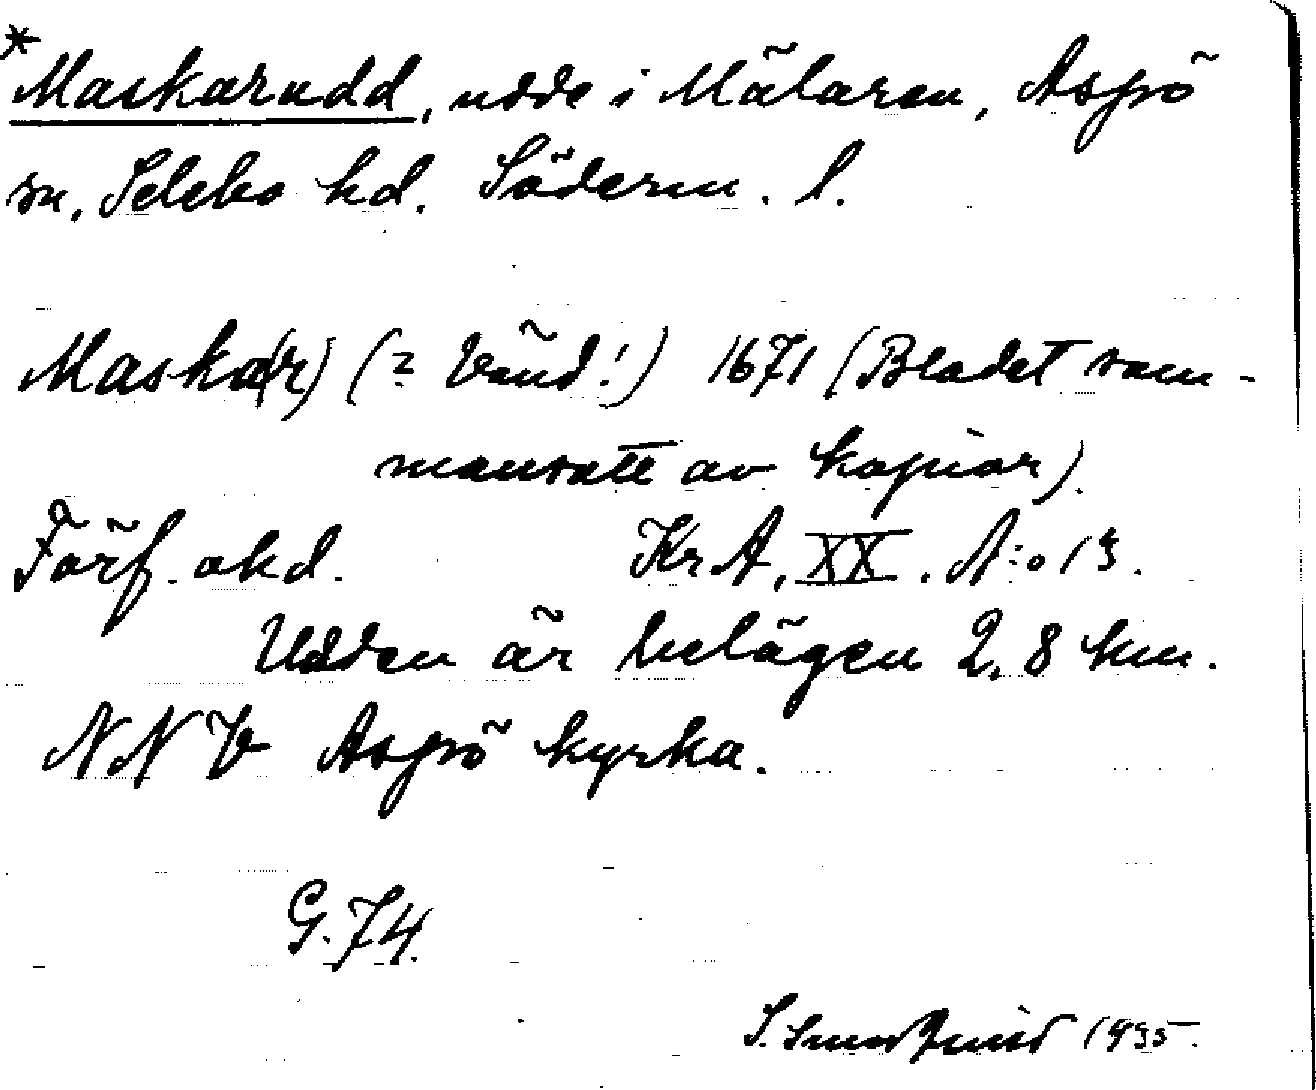 *Maskarudd, udde i Mälaren, Aspö
sn, Selebo hd. Söderm. l.
Maska(r) (? Vänd!) 1671 (Bladet sam-
mansatt av kopior).
Förf. okd. KrA, XX. N:o 13.
Udden är belägen 2,8 km.
NNV Aspö kyrka.
G. 74.
S. 1935.